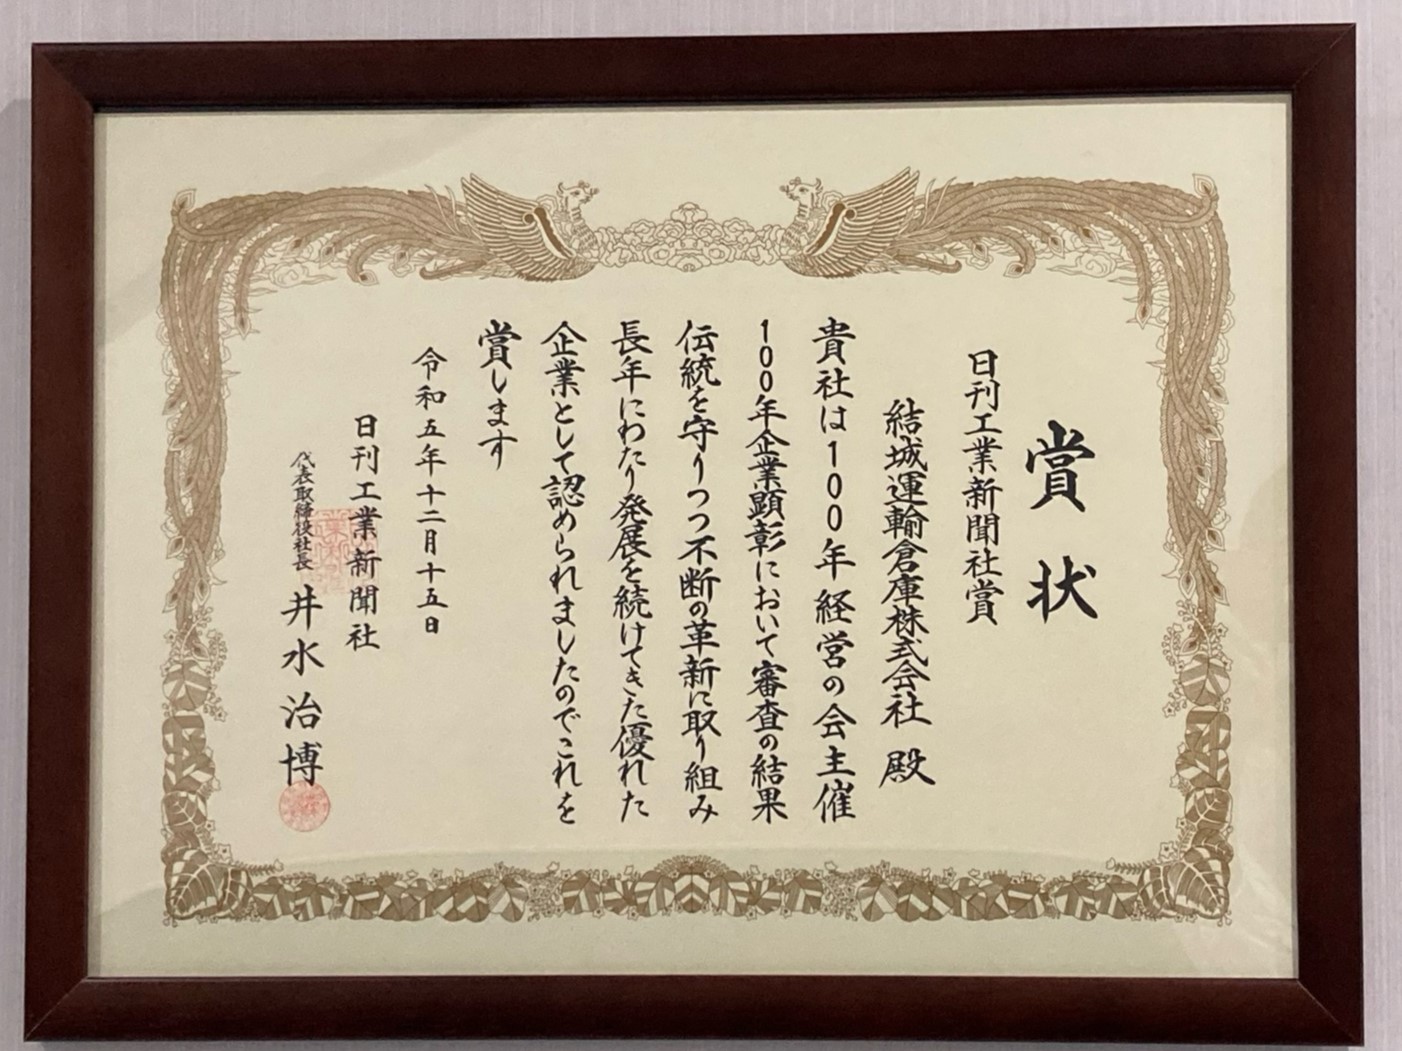 賞状
日刊工業新聞社賞
結城運輸倉庫株式会社 殿
貴社は100年経営の会主催
100年企業顕彰において審査の結果
伝統を守りつつ不断の革新に取り組み
長年にわたり発展を続けてきた優れた
企業として認められましたのでこれを
賞します
令和五年十二月十五日
日刊工業新聞社
代表取締役社長 井水治博